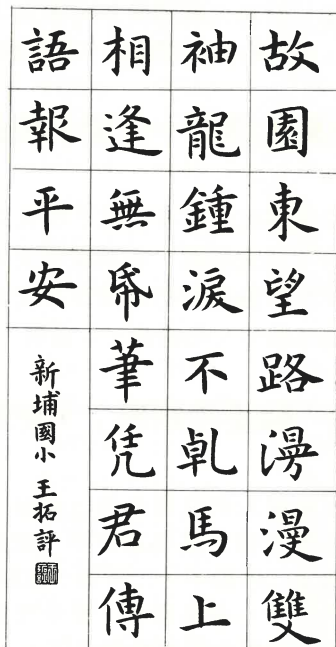 故園東望路漫漫雙
袖龍鍾淚不乹馬上
相逢無帋筆凭君傳
語報平安
新埔國小 王拓評